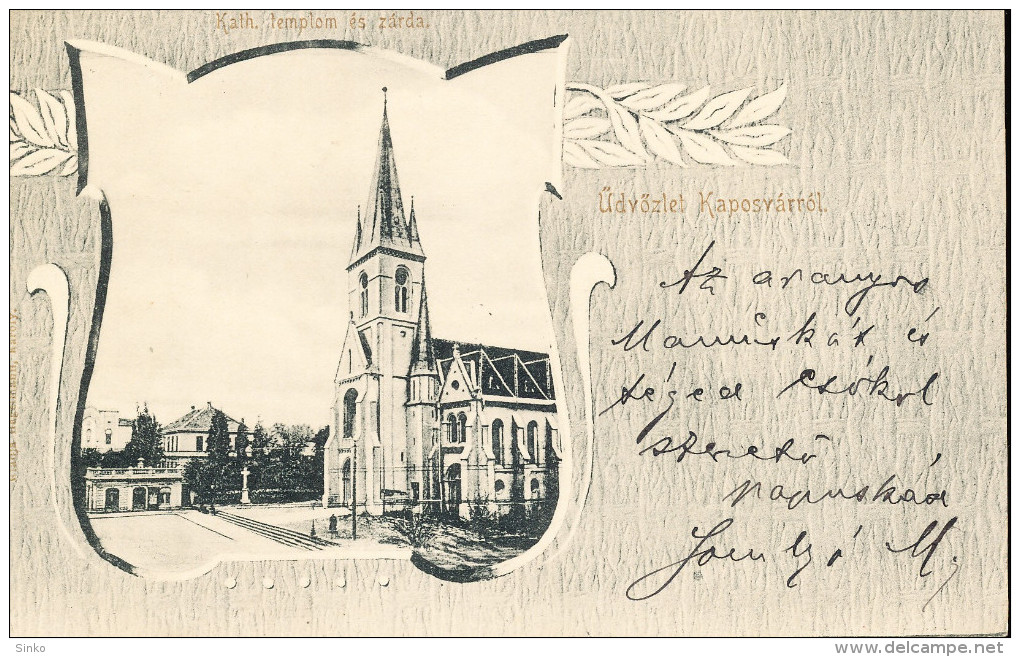 Kath. templom és zárda.
Üdvözlet Kaposvárról.
Az aranyos
Mamuskát és
téged csókol
szerető
Papuskád
Somlyó M.
Sinko
www.delcampe.net